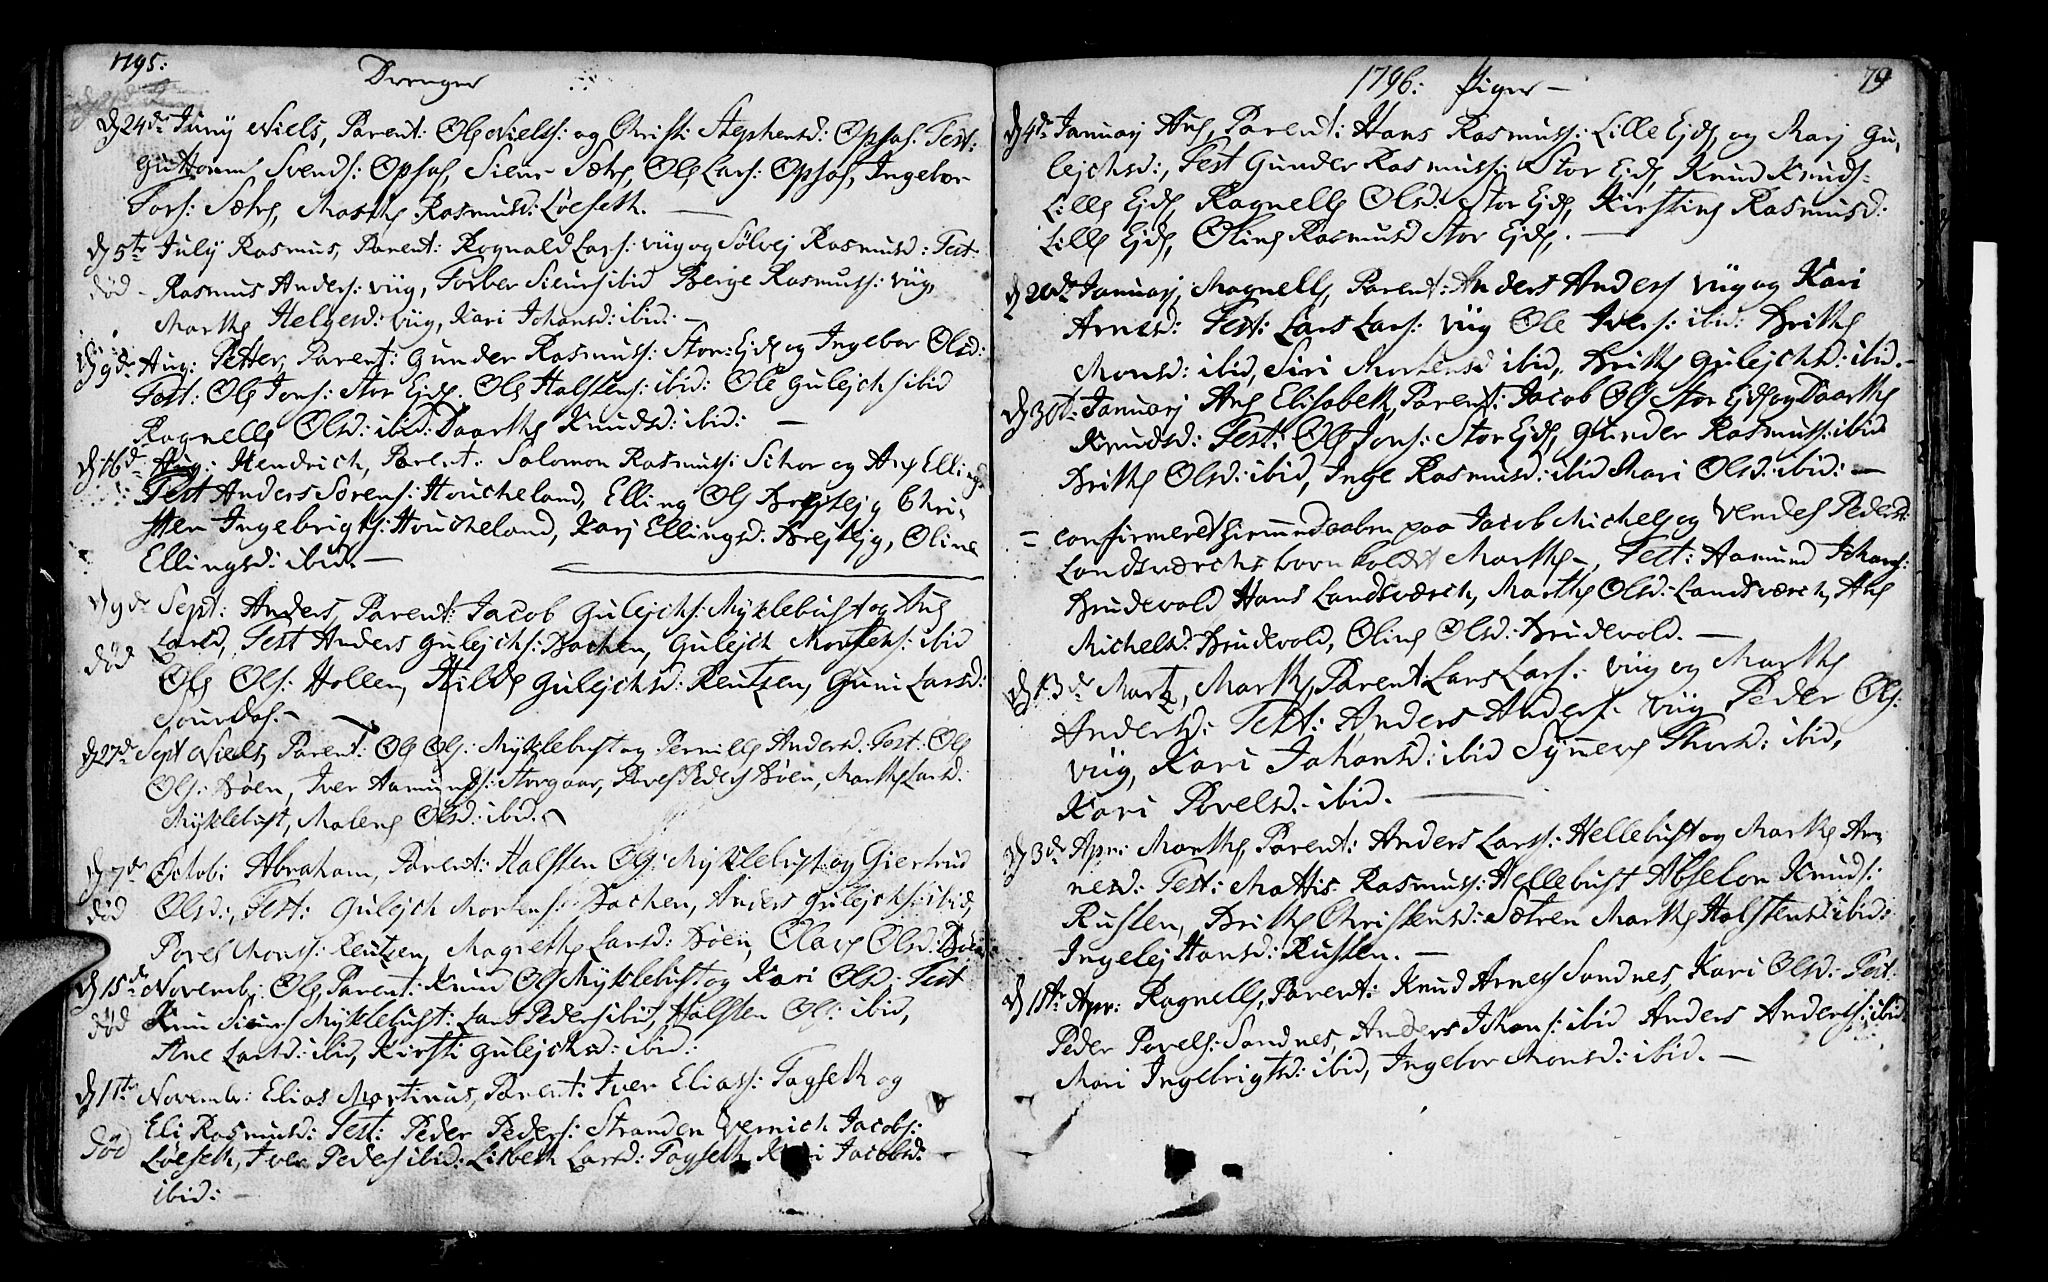 1795:
Drenger
d 24de Juny Niels, Parent: Ole Niels: og Christi Stephensd: Opsas. Test:
Guttorm Svends: Opsas, Siur Sætre, Ole Lars: Opsas, Ingebor
Tors: Sætre, Marthe Rasmusd: Løeseth. —
d 5te July Rasmus, Parent: Rognald Lars: Viig og Sølvej Rasmusd: Test
død - Rasmus Anders: Viig, Torber Siurs ibid Berge Rasmuss: Viig,
Marthe Helgesd: Viig, Kari Johansd: ibid: —
d 9de Aug: Petter, Parent: Gunder Rasmuss: Stor: Ejde og Ingebor Olsd:
Test: Ole Jons: Stor Ejde. Ole Halstens: ibid: Ole Gulejchs ibid
Ragnelle Olsd: ibid: Daarthe Knudsd: ibid: —
d 16de Aug: Hendrich, Parent: Solomon Rasmuss: Schor og Ane Ellingsd:
Test Anders Sørens: Houcheland, Elling Ols Brejtejg Chri-
sten Ingebrigts: Houcheland, Karj Ellingsd: Brejtejg, Oline
Ellingsd: ibid. —
d 9de Sept: Anders, Parent: Jacob Gulejchs: Myklebust og Ane
død Larsd, Test Anders Gulejchs: Bachen, Gulejch Mortens: ibid
Ole Ols: Hollen, Hilde Gulejchsd: Reutzen, Guni Larsd:
Sourdas. —
d 27de Sept Niels, Parent: Ole Ols: Myklebust og Pernille Andersd. Test: Ole
Ols: Bøen, Iver Aamunds: Storgaar, Povel Peders Bøen, Marthe Larsd:
Myklebust, Malene Olsd: ibid.
d 7de Octob: Abraham, Parent: Halsten Ols: Myklebust og Giertrud
død Olsd:, Test: Gulejch Mortens: Bachen, Anders Gulejchs: ibid,
Povel Mons: Reutzen, Magrethe Larsd: Bøen, Olave Olsd: Bøen
d 15de Novemb: Ole, Parent: Knud Ols Myklebust og Kari Olsd: Test
død Knu Siurs Myklebust: Lars Peders ibid, Halsten Ols: ibid,
Ane Larsd: ibid, Kirsti Gulejchsd: ibid:
d 1te November: Elias Martinus, Parent: Iver Eliass: Tagseth og
Eli Rasmusd: Test: Peder Peders: Stranden Vernich Jacobs:
død Løeseth, Iver Peders ibid: Lisbeth Larsd: Tagseth Kari Jacobsd:
ibid: —
1796: Piger — 79
d 4de Januarj Ane, Parent: Hans Rasmuss: Lille Ejde, og Marj Gu-
lejchsd:, Test Gunder Rasmuss: Stor Ejde, Knud Knuds:
Lille Ejde, Ragnelle Olsd: Stor Ejde, Kirstine Rasmusd:
Lille Ejde, Oline Rasmusd Stor Ejde. —
d 20de Januarj, Magnelle, Parent: Anders Anders Viig og Kari
Arnesd: Test: Lars Lars: Viig Ole Ivers: ibid: Brithe
Monsd: ibid, Siri Mortensd ibid, Brithe Gulejchsd: ibid. —
d 30te Januarj Ane Elisabeth, Parent: Jacob Ols Stor Ejde og Daarthe
Knudsd: Test: Ole Jons: Stor Ejde, Gunder Rasmuss: ibid
Brithe Olsd: ibid, Inge Rasmusd: ibid Mari Olsd: ibid: —
= confirmeret hiemmedaaben paa Jacob Michels og Vendel Pedersd:
Landsværchs barn koldet Marthe —, Test: Aamund Johans:
Brudevold Hans Landsværch, Marthe Olsd: Landsværch, Ane
Michelsd: Brudevold, Oline Olsd: Brudevold. —
d 13de Martz, Marthe, Parent: Lars Lars: Viig og Marthe
Andersd: Test: Anders Anders: Viig Peder Ols:
Viig, Kari Johansd: ibid Synneve Thorsd: ibid,
Kari Povelsd: ibid. —
d 3de Apr: Marthe, Parent: Anders Larss: Hellebust og Marthe Ar-
nesd: Test: Mattis Rasmuss: Hellebust Abselon Knuds:
Rusten, Brithe Christensd: Sætren Marthe Halstensd: ibid:
Ingelej Hansd: Rusten. —
d 1te Apr: Ragnelle, Parent: Knud Arnes Sandnes, Kari Olsd: Test:
Peder Povels: Sandnes Anders Johans: ibid Anders Anderss: ibid
Mari Ingebrigtsd: ibid, Ingebor Monsd: ibid. —